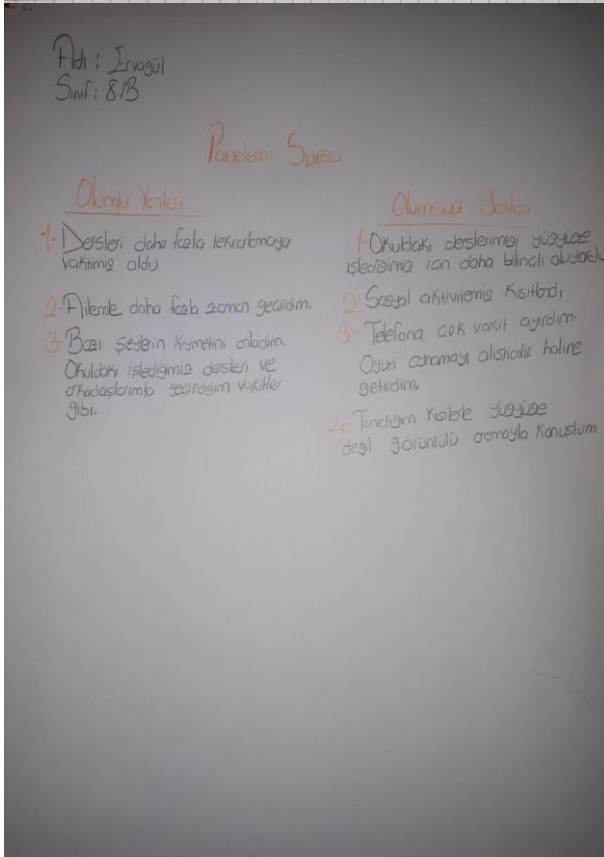 Adı : İrvagül
Sınıf : 8/B
Pandemi Süreci
Olumlu Yanları
1- Dersleri daha fazla tekrarlamaya
vaktimiz oldu
2- Ailemle daha fazla zaman geçirdim.
3- Bazı şeylerin kıymetini anladım.
Okuldaki işlediğimiz dersleri ve
arkadaşlarımla geçirdiğim vakitler
gibi.
Olumsuz Yanları
1- Okuldaki derslerimizi yüzyüze
işlediğimiz için daha bilinçli oluyordu
2 Sosyal aktivitemiz kısıtlandı
3- Telefona çok vakit ayırdım.
Oyun oynamayı alışkanlık haline
getirdim.
4- Tanıdığım kişilerle yüzyüze
değil görüntülü aramayla konuştum.